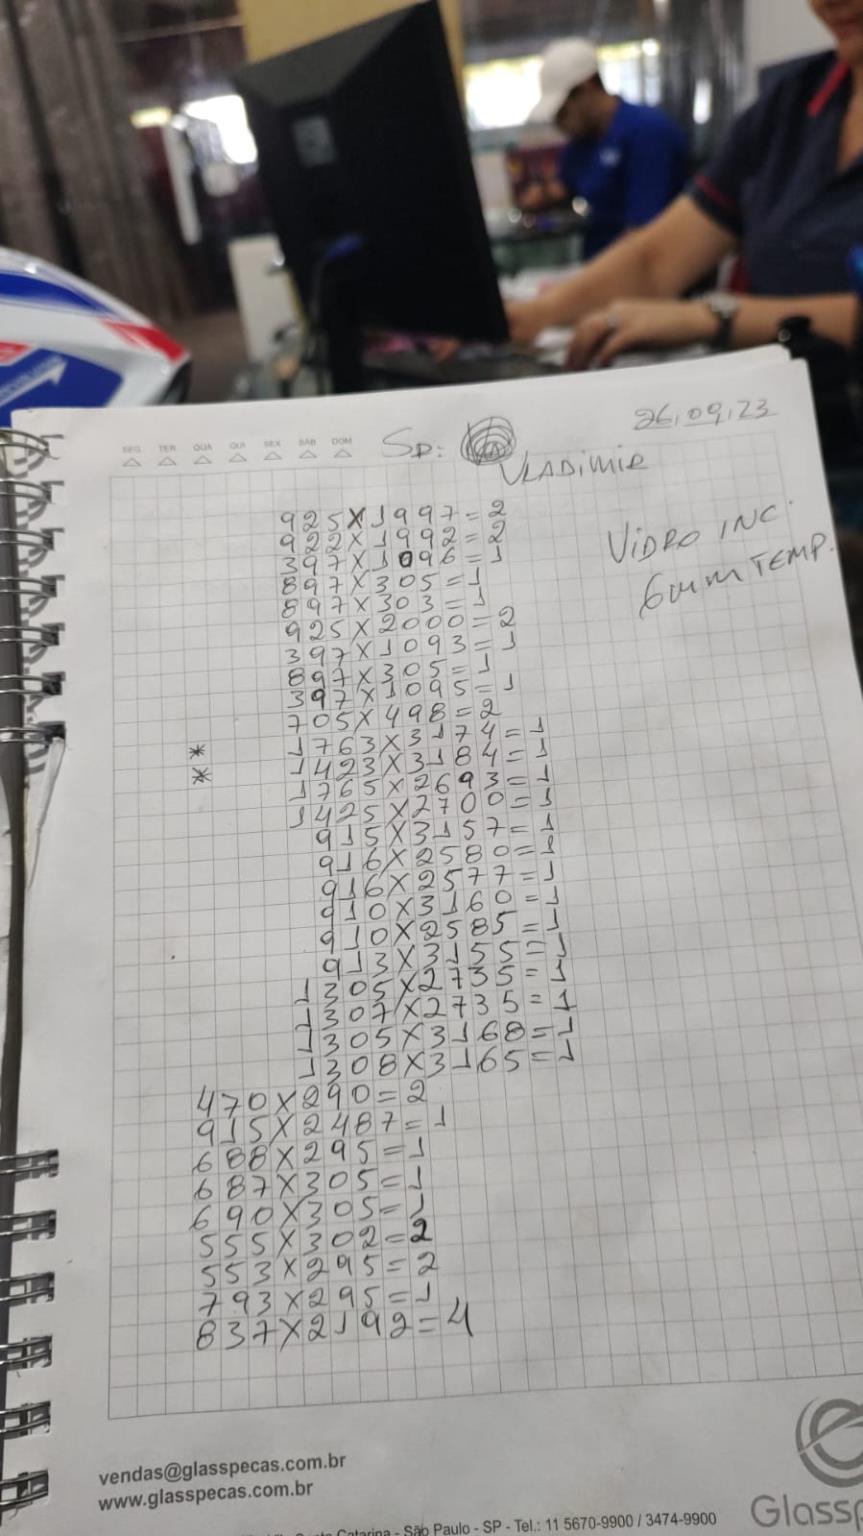 26,09,23
SEG TER QUA QUI SEX SAB DOM SD:
VLADIMIR
VIDRO INC.
6mm TEMP.
925X1997=2
922X1992=2
397X1096=1
897X305=1
897X303=1
925X2000=2
397X1093=1
897X305=1
397X1095=1
705X498=2
* 1763X3174=1
* 1423X3184=1
1765X2693=1
1425X2700=1
915X3157=1
916X2580=1
916X2577=1
910X3160=1
910X2585=1
913X3155=1
1305X2735=1
1307X2735=1
1305X3168=1
1308X3165=1
470X290=2
915X2487=1
688X295=1
687X305=1
690X305=1
555X302=2
553X295=2
793X295=1
837X2192=4
vendas@glasspecas.com.br
www.glasspecas.com.br
Catarina - São Paulo - SP - Tel.: 11 5670-9900 / 3474-9900
Glassp